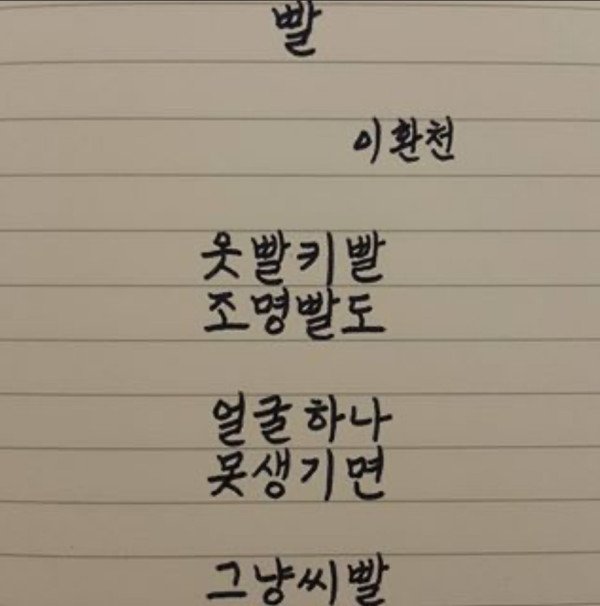 빨
이환천
옷빨키빨
조명빨도
얼굴하나
못생기면
그냥씨빨